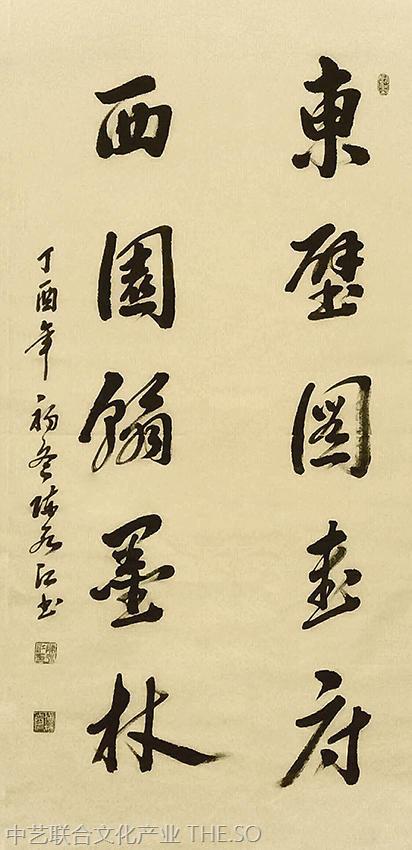 東壁圖書府
西園翰墨林
丁酉年初冬陈若江书
中艺联合文化产业 THE.SO